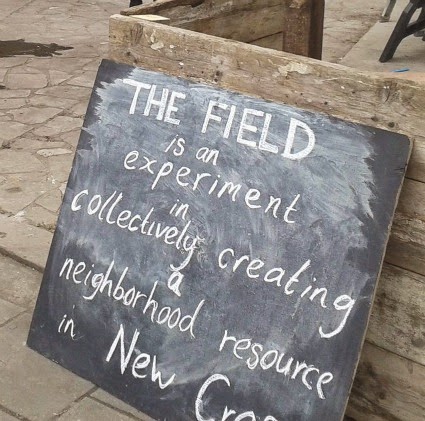 THE FIELD
is an
experiment
in
collectively creating
a
neighborhood resource
in New